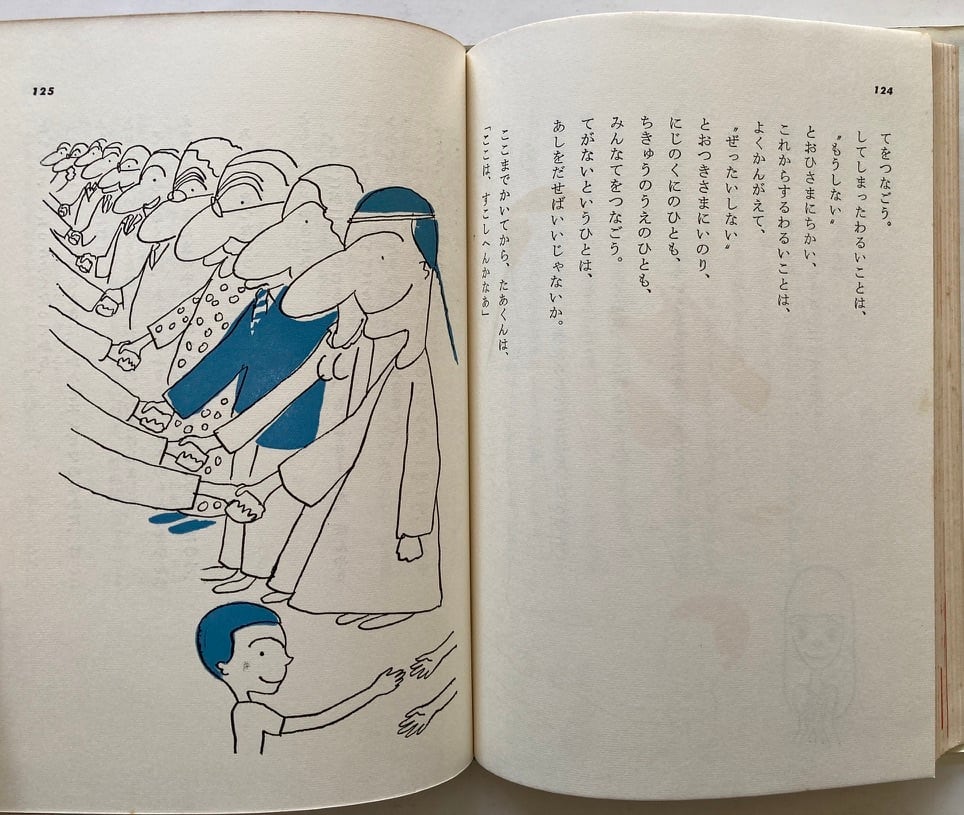 124
てをつなごう。
してしまったわるいことは、
〝もうしない〟
とおひさまにちかい、
これからするわるいことは、
よくかんがえて、
〝ぜったいしない〟
とおつきさまにいのり、
にじのくにのひとも、
ちきゅうのうえのひとも、
みんなてをつなごう。
てがないというひとは、
あしをだせばいいじゃないか。
ここまでかいてから、たあくんは、
「ここは、すこしへんかなあ」
125